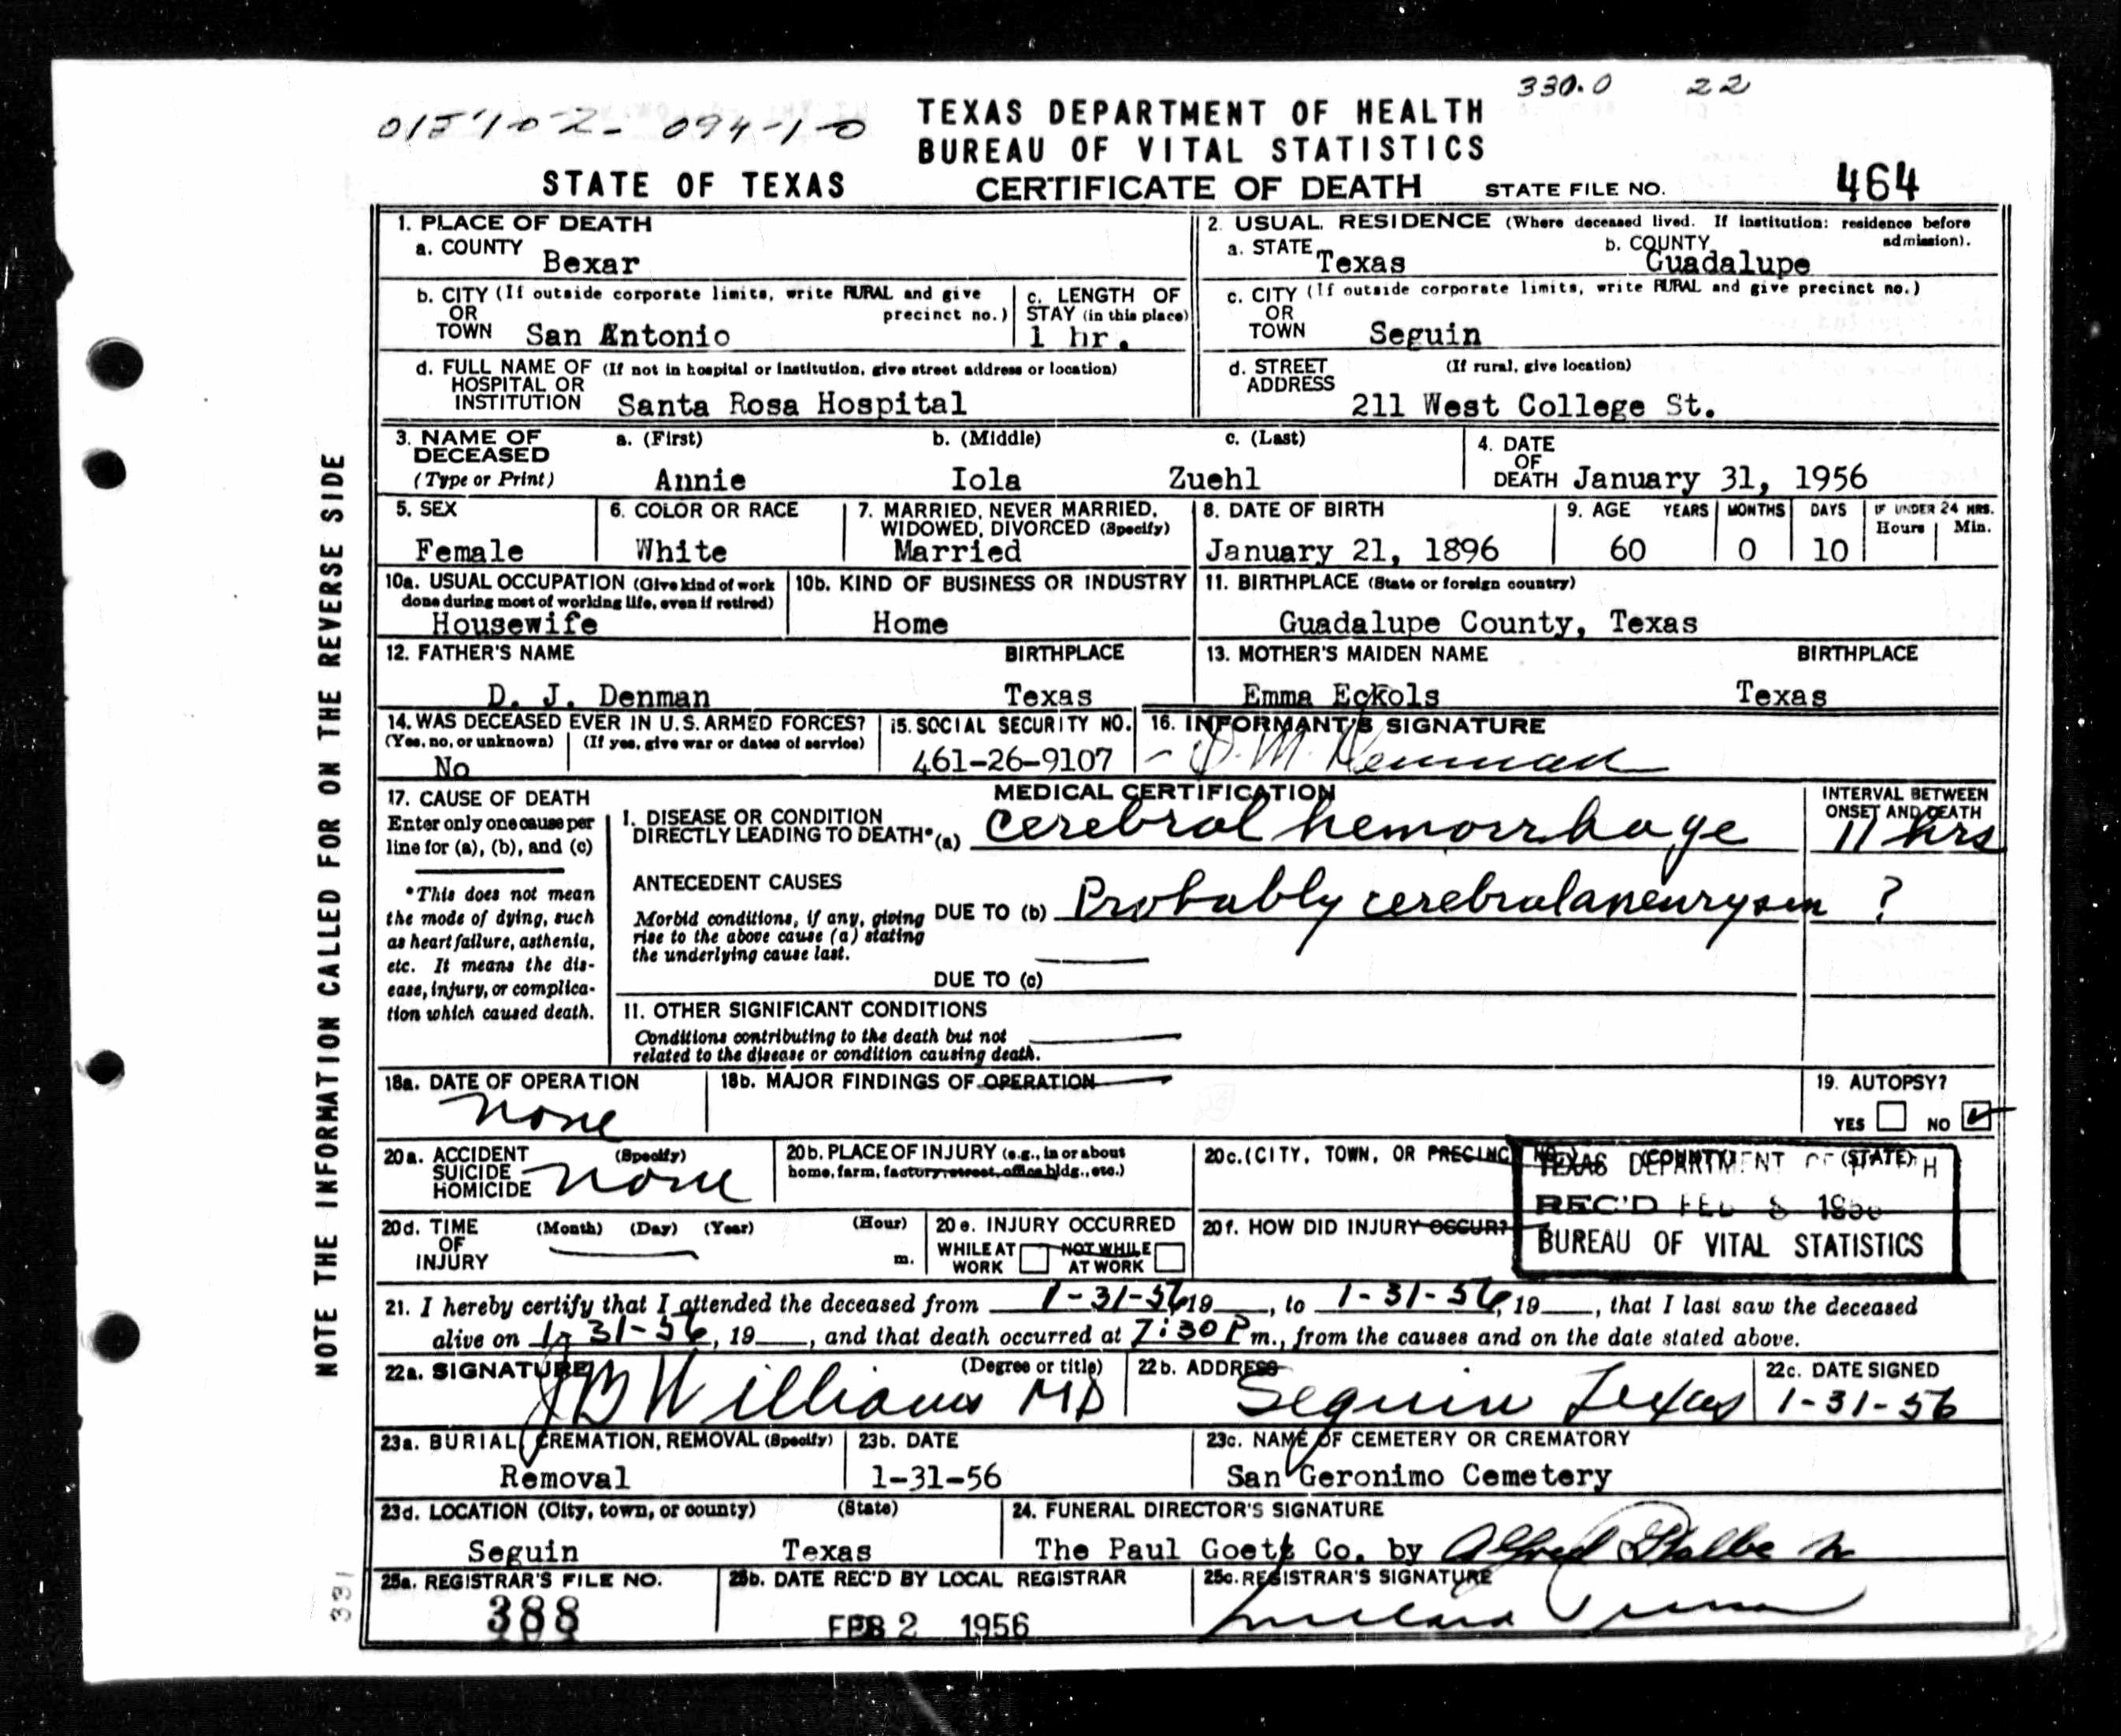 330.0 22
TEXAS DEPARTMENT OF HEALTH
BUREAU OF VITAL STATISTICS
STATE OF TEXAS CERTIFICATE OF DEATH STATE FILE NO. 464
NOTE THE INFORMATION CALLED FOR ON THE REVERSE SIDE
1. PLACE OF DEATH
a. COUNTY Bexar
2. USUAL RESIDENCE (Where deceased lived. If institution: residence before admission).
a. STATE Texas b. COUNTY Guadalupe
b. CITY (If outside corporate limits, write RURAL and give precinct no.)
OR TOWN San Antonio
c. LENGTH OF STAY (in this place) 1 hr.
c. CITY (If outside corporate limits, write RURAL and give precinct no.)
OR TOWN Seguin
d. FULL NAME OF HOSPITAL OR INSTITUTION (If not in hospital or institution, give street address or location)
Santa Rosa Hospital
d. STREET ADDRESS (If rural, give location)
211 West College St.
3. NAME OF DECEASED (Type or Print) a. (First) b. (Middle) c. (Last)
Annie Iola Zuehl
4. DATE OF DEATH January 31, 1956
5. SEX Female
6. COLOR OR RACE White
7. MARRIED, NEVER MARRIED, WIDOWED, DIVORCED (Specify) Married
8. DATE OF BIRTH January 21, 1896
9. AGE YEARS MONTHS DAYS IF UNDER 24 HRS. Hours Min.
60 0 10
10a. USUAL OCCUPATION (Give kind of work done during most of working life, even if retired)
Housewife
10b. KIND OF BUSINESS OR INDUSTRY
Home
11. BIRTHPLACE (State or foreign country)
Guadalupe County, Texas
12. FATHER'S NAME BIRTHPLACE
D. J. Denman Texas
13. MOTHER'S MAIDEN NAME BIRTHPLACE
Emma Eckols Texas
14. WAS DECEASED EVER IN U.S. ARMED FORCES?
(Yes, no, or unknown) (If yes, give war or dates of service)
No
15. SOCIAL SECURITY NO.
461-26-9107
16. INFORMANT'S SIGNATURE
D. M. Denman
MEDICAL CERTIFICATION
17. CAUSE OF DEATH
Enter only one cause per line for (a), (b), and (c)
*This does not mean the mode of dying, such as heart failure, asthenia, etc. It means the disease, injury, or complication which caused death.
I. DISEASE OR CONDITION DIRECTLY LEADING TO DEATH* (a) Cerebral hemorrhage
INTERVAL BETWEEN ONSET AND DEATH
11 hrs
ANTECEDENT CAUSES
Morbid conditions, if any, giving rise to the above cause (a) stating the underlying cause last.
DUE TO (b) Probably cerebral aneurysm ?
DUE TO (c)
II. OTHER SIGNIFICANT CONDITIONS
Conditions contributing to the death but not related to the disease or condition causing death.
18a. DATE OF OPERATION
none
18b. MAJOR FINDINGS OF OPERATION
19. AUTOPSY?
YES NO
20a. ACCIDENT SUICIDE HOMICIDE (Specify)
none
20b. PLACE OF INJURY (e.g., in or about home, farm, factory, street, office bldg., etc.)
20c. (CITY, TOWN, OR PRECINCT NO.) (COUNTY) (STATE)
TEXAS DEPARTMENT OF HEALTH
REC'D FEB 8 1956
BUREAU OF VITAL STATISTICS
20d. TIME OF INJURY (Month) (Day) (Year) (Hour) m.
20e. INJURY OCCURRED
WHILE AT WORK NOT WHILE AT WORK
20f. HOW DID INJURY OCCUR?
21. I hereby certify that I attended the deceased from 1-31-56 19__, to 1-31-56, 19__, that I last saw the deceased
alive on 1-31-56, 19__, and that death occurred at 7:30 P m., from the causes and on the date stated above.
22a. SIGNATURE (Degree or title)
J B Williams MD
22b. ADDRESS
Seguin Texas
22c. DATE SIGNED
1-31-56
23a. BURIAL, CREMATION, REMOVAL (Specify)
Removal
23b. DATE
1-31-56
23c. NAME OF CEMETERY OR CREMATORY
San Geronimo Cemetery
23d. LOCATION (City, town, or county) (State)
Seguin Texas
24. FUNERAL DIRECTOR'S SIGNATURE
The Paul Goetz Co. by Alfred
25a. REGISTRAR'S FILE NO.
388
25b. DATE REC'D BY LOCAL REGISTRAR
FEB 2 1956
25c. REGISTRAR'S SIGNATURE
331